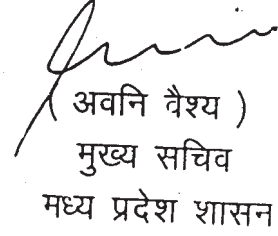 ( अवनि वैश्य )
मुख्य सचिव
मध्य प्रदेश शासन